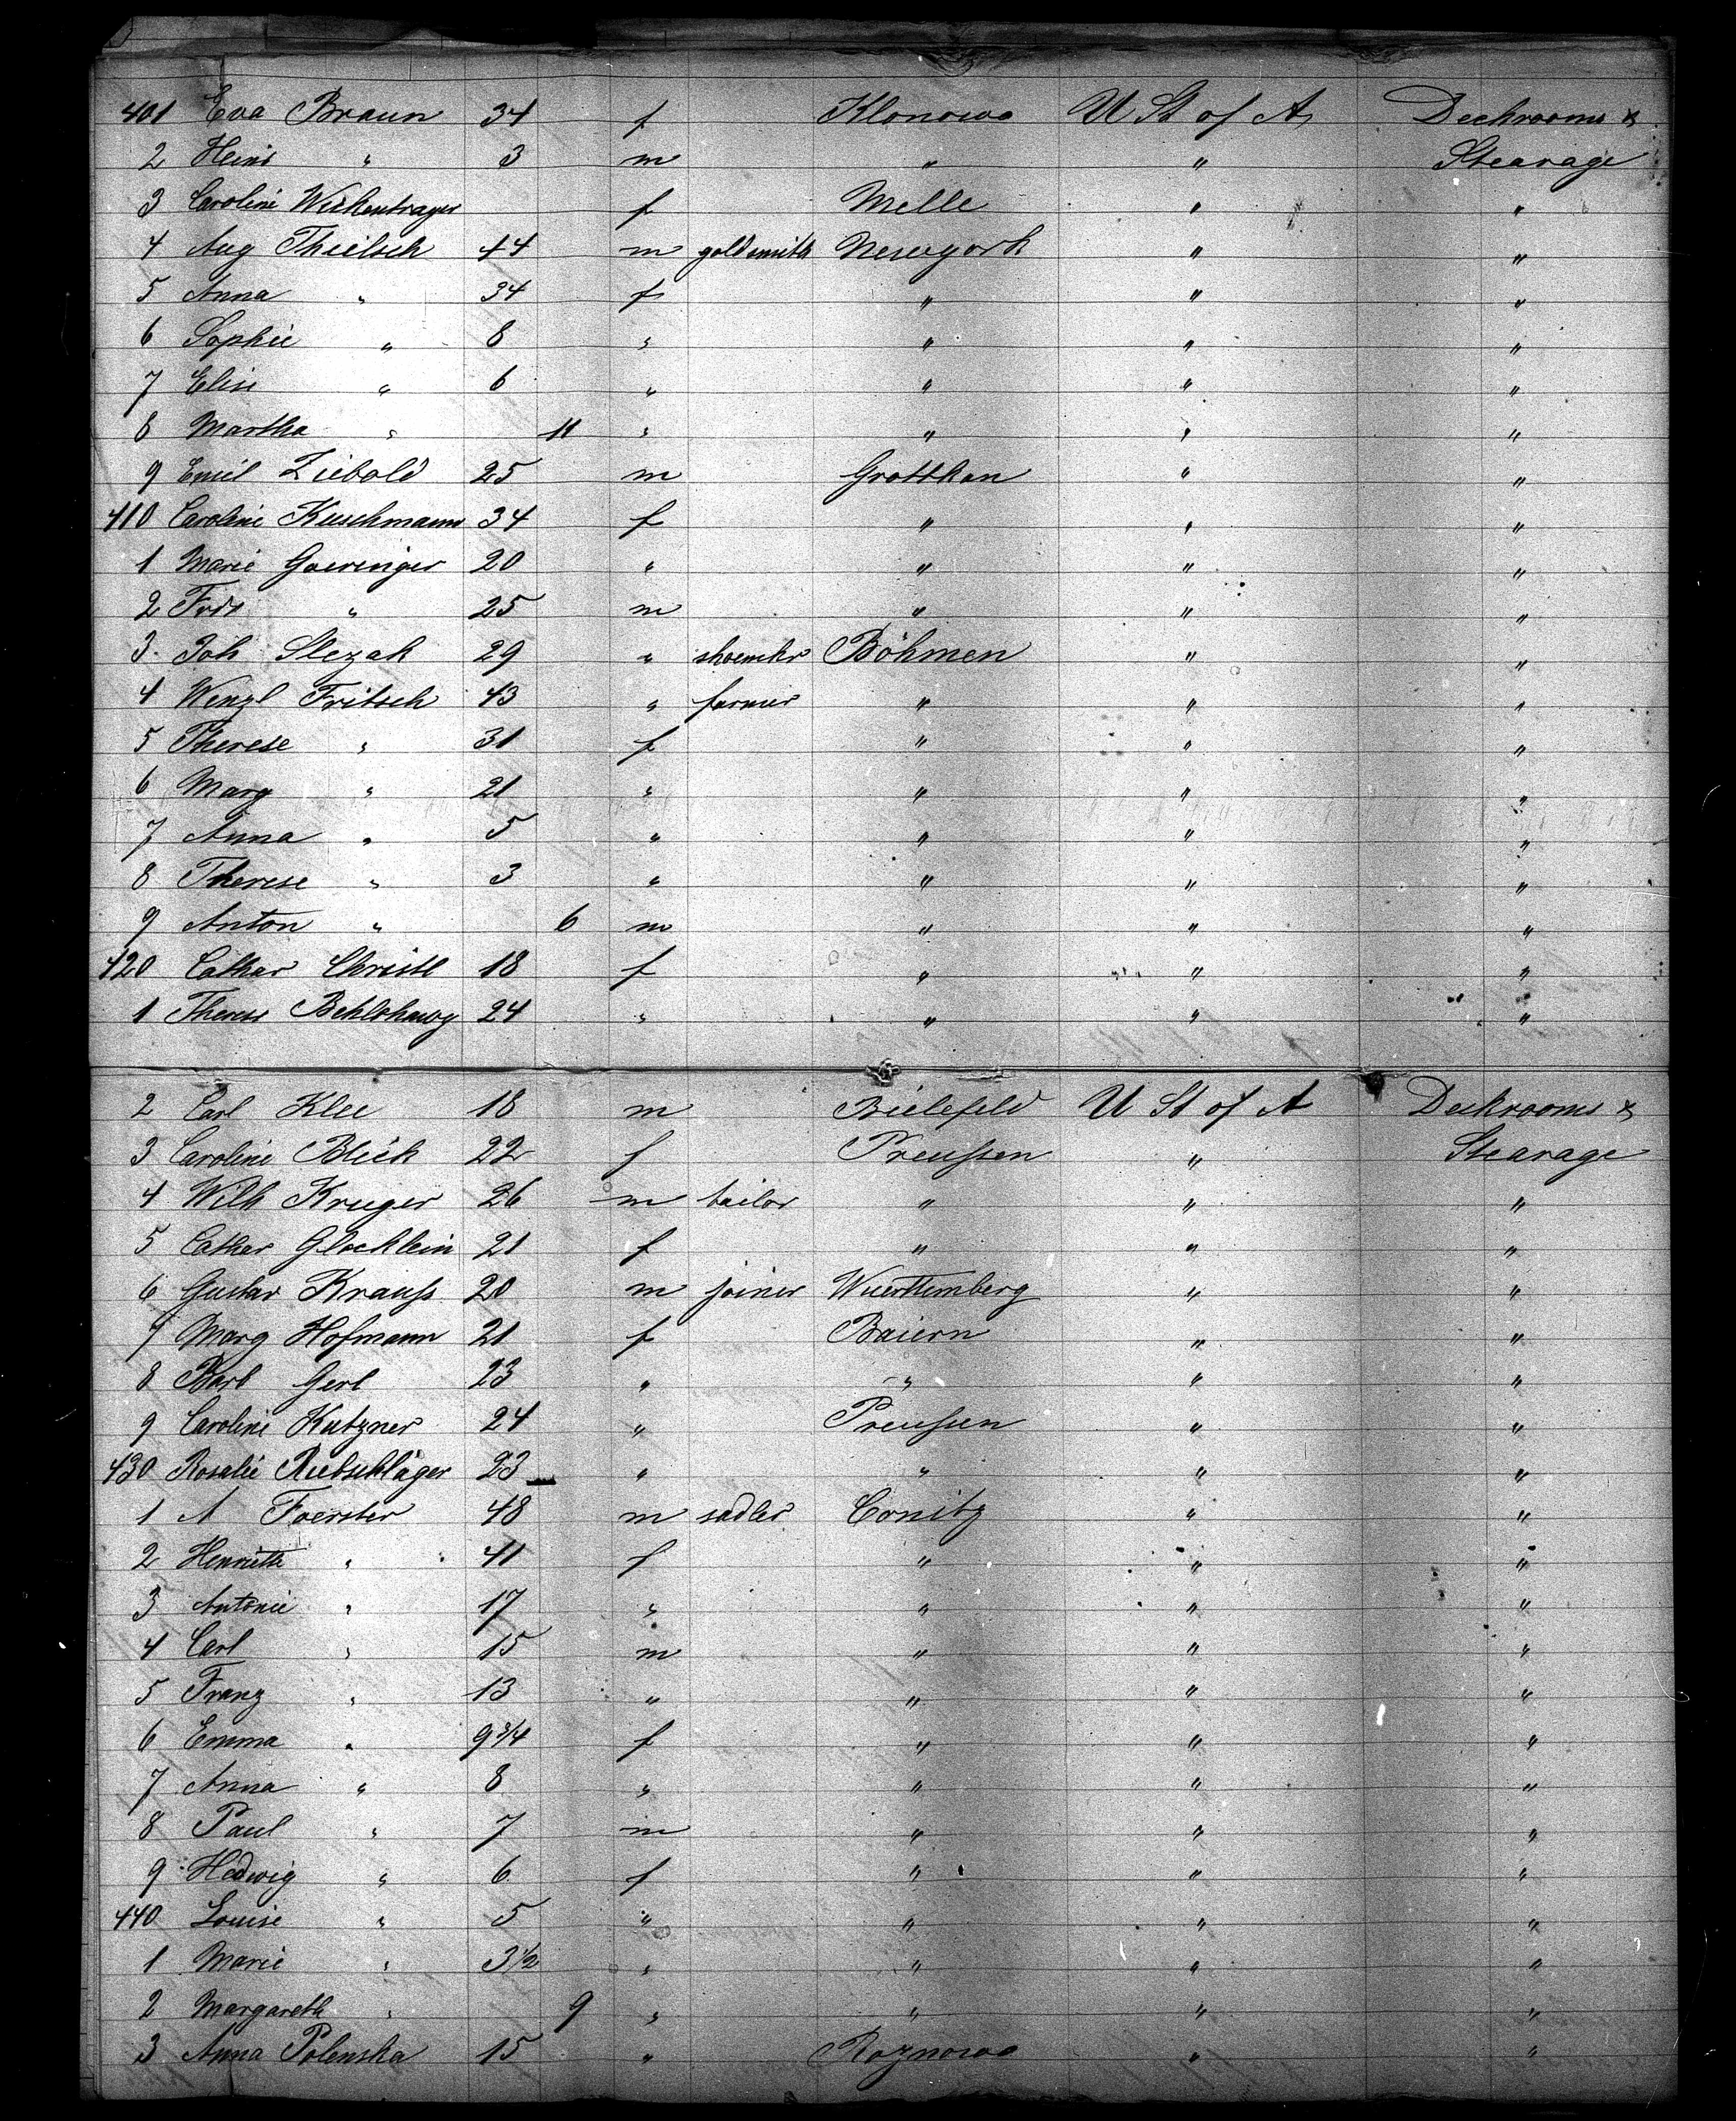 401 Eva Braun 34 f Klonowo U St of A, Deckrooms &
2 Heinr " 3 m " " Stearage
3 Caroline Wickentrager f Melle " "
4 Aug Thielsch 44 m goldsmith Newyork " "
5 Anna " 34 f " " "
6 Sophie " 8 " " " "
7 Elise " 6 " " " "
8 Martha " 11 " " " "
9 Emil Ziebold 25 m Grottkau " "
410 Caroline Kuschmann 34 f " " "
1 Marie Goeringer 20 " " " "
2 Frdr " 25 m " " "
3. Joh Slezak 29 " shoemkr Böhmen " "
4 Wenzl Fritsch 43 " farmer " " "
5 Therese " 31 f " " "
6 Marg " 21 " " " "
7 Anna " 5 " " " "
8 Therese " 3 " " " "
9 Anton " 6 m " " "
420 Cathar Christl 18 f " " "
1 Theres 24 " " " "
2 Carl Klee 18 m Bielefeld U St of A Deckrooms &
3 Caroline Blick 22 f Preußen " Stearage
4 Wilh Kruger 26 m tailor " " "
5 Cathar Glocklein 21 f " " "
6 Gustav Krauß 20 m joiner Wuerttemberg " "
7 Marg Hofmann 21 f Baiern " "
8 Barb Gerl 23 " " " "
9 Caroline Kutzner 24 " Preußen " "
430 Rosalie Rutschläger 23 " " " "
1 A Foerster 48 m sadler Conitz " "
2 Henriette " 41 f " " "
3 Antonie " 17 " " " "
4 Carl " 15 m " " "
5 Franz " 13 " " " "
6 Emma " 9 3/4 f " " "
7 Anna " 8 " " " "
8 Paul " 7 m " " "
9 Hedwig " 6 f " " "
440 Louise " 5 " " " "
1 Marie " 3 1/2 " " " "
2 Margareth " 9 " " " "
3 Anna Polenska 15 " Roznowo " "